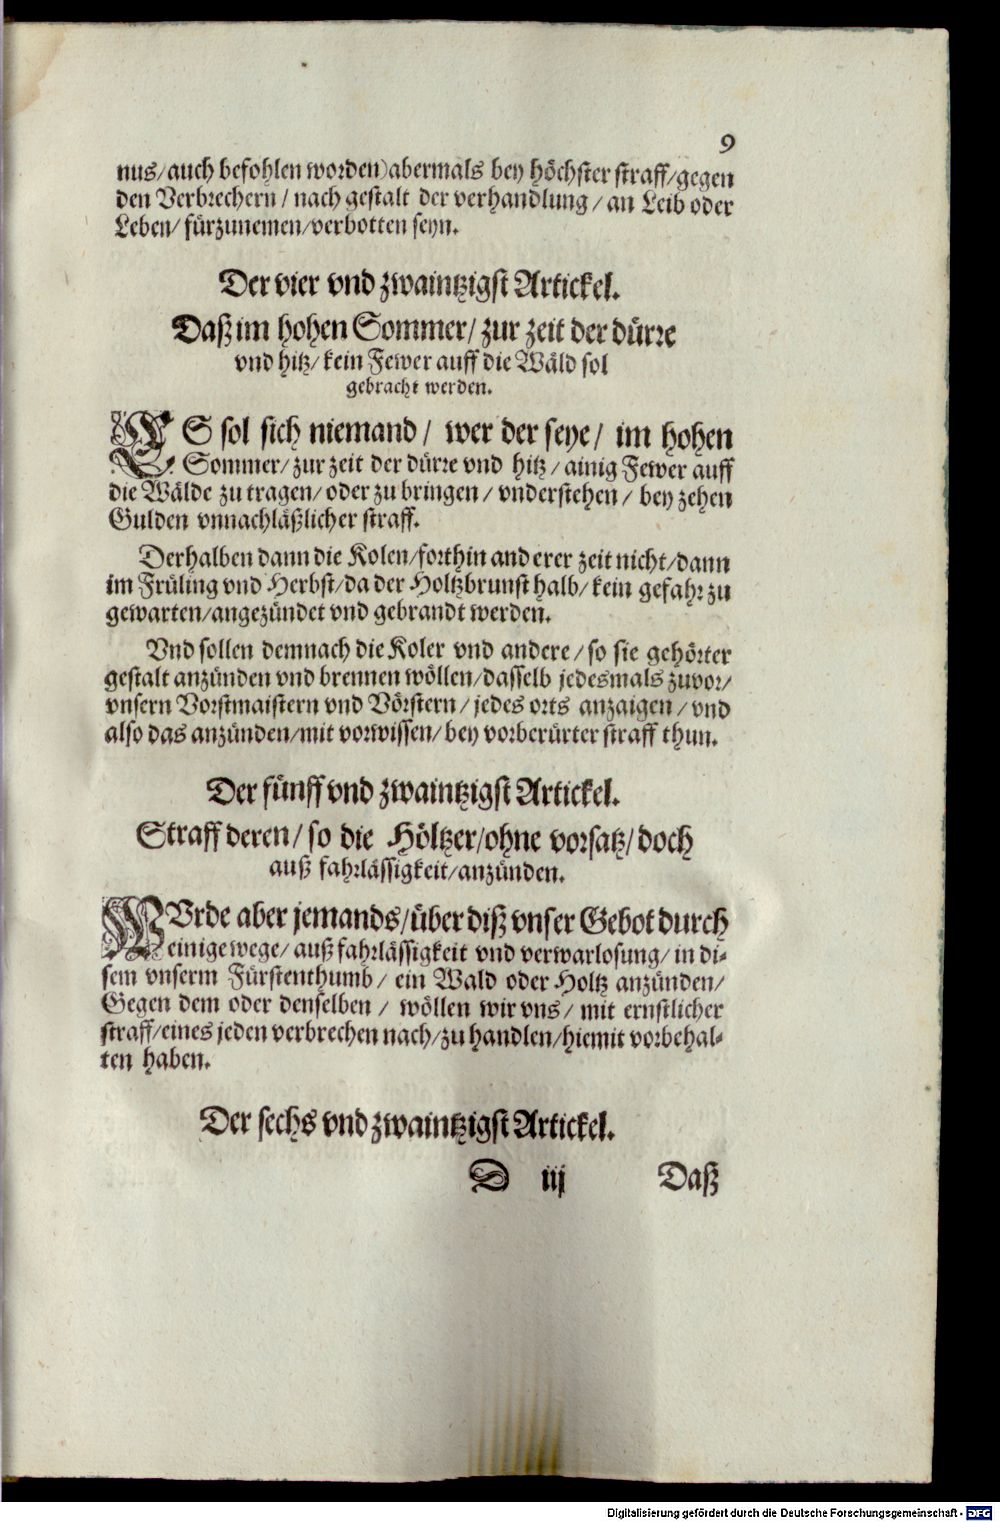 9
nus/auch befohlen worden)abermals bey höchster straff/gegen
den Verbrechern/ nach gestalt der verhandlung/ an Leib oder
Leben/ fürzunemen/verbotten seyn.
Der vier vnd zwaintzigst Artickel.
Daß im hohen Sommer/ zur zeit der dürre
vnd hitz/ kein Fewer auff die Wäld sol
gebracht werden.
ES sol sich niemand/ wer der seye/ im hohen
Sommer/ zur zeit der dürre vnd hitz/ ainig Fewer auff
die Wälde zu tragen/ oder zu bringen/ vnderstehen/ bey zehen
Gulden vnnachläßlicher straff.
Derhalben dann die Kolen/forthin anderer zeit nicht/dann
im Früling vnd Herbst/da der Holtzbrunst halb/ kein gefahr zu
gewarten/angezündet vnd gebrandt werden.
Vnd sollen demnach die Koler vnd andere/ so sie gehörter
gestalt anzünden vnd brennen wöllen/dasselb jedesmals zuvor/
vnsern Vorstmaistern vnd Vörstern/ jedes orts anzaigen/ vnd
also das anzünden/mit vorwissen/ bey vorberürter straff thun.
Der fünff vnd zwaintzigst Artickel.
Straff deren/ so die Höltzer/ohne vorsatz/ doch
auß fahrlässigkeit/anzünden.
WVrde aber jemands/über diß vnser Gebot durch
einige wege/ auß fahrlässigkeit vnd verwarlosung/ in di-
sem vnserm Fürstenthumb/ ein Wald oder Holtz anzünden/
Gegen dem oder denselben/ wöllen wir vns/ mit ernstlicher
straff/eines jeden verbrechen nach/zu handlen/hiemit vorbehal-
ten haben.
Der sechs vnd zwaintzigst Artickel.
D iij Daß
Digitalisierung gefördert durch die Deutsche Forschungsgemeinschaft - DFG